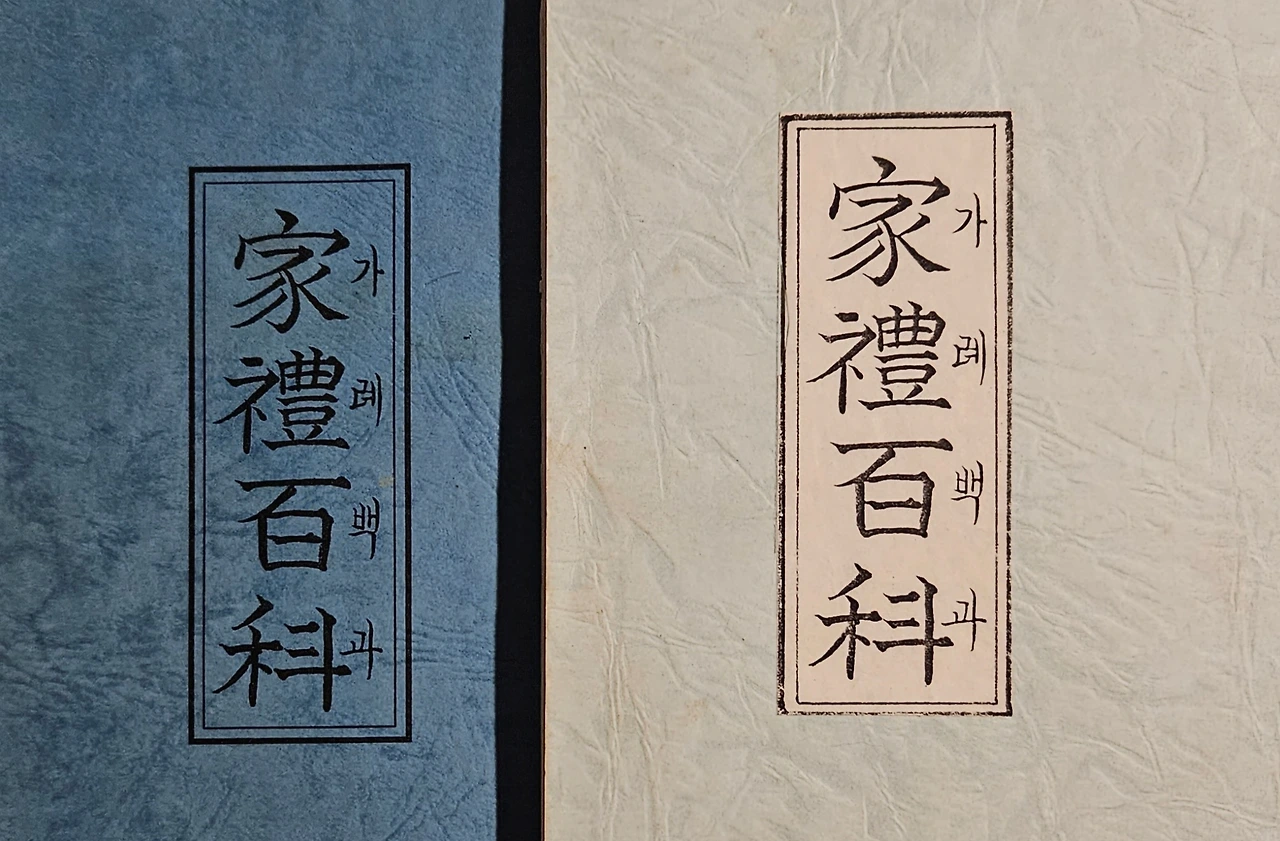 家禮百科
가례백과
家禮百科
가례백과